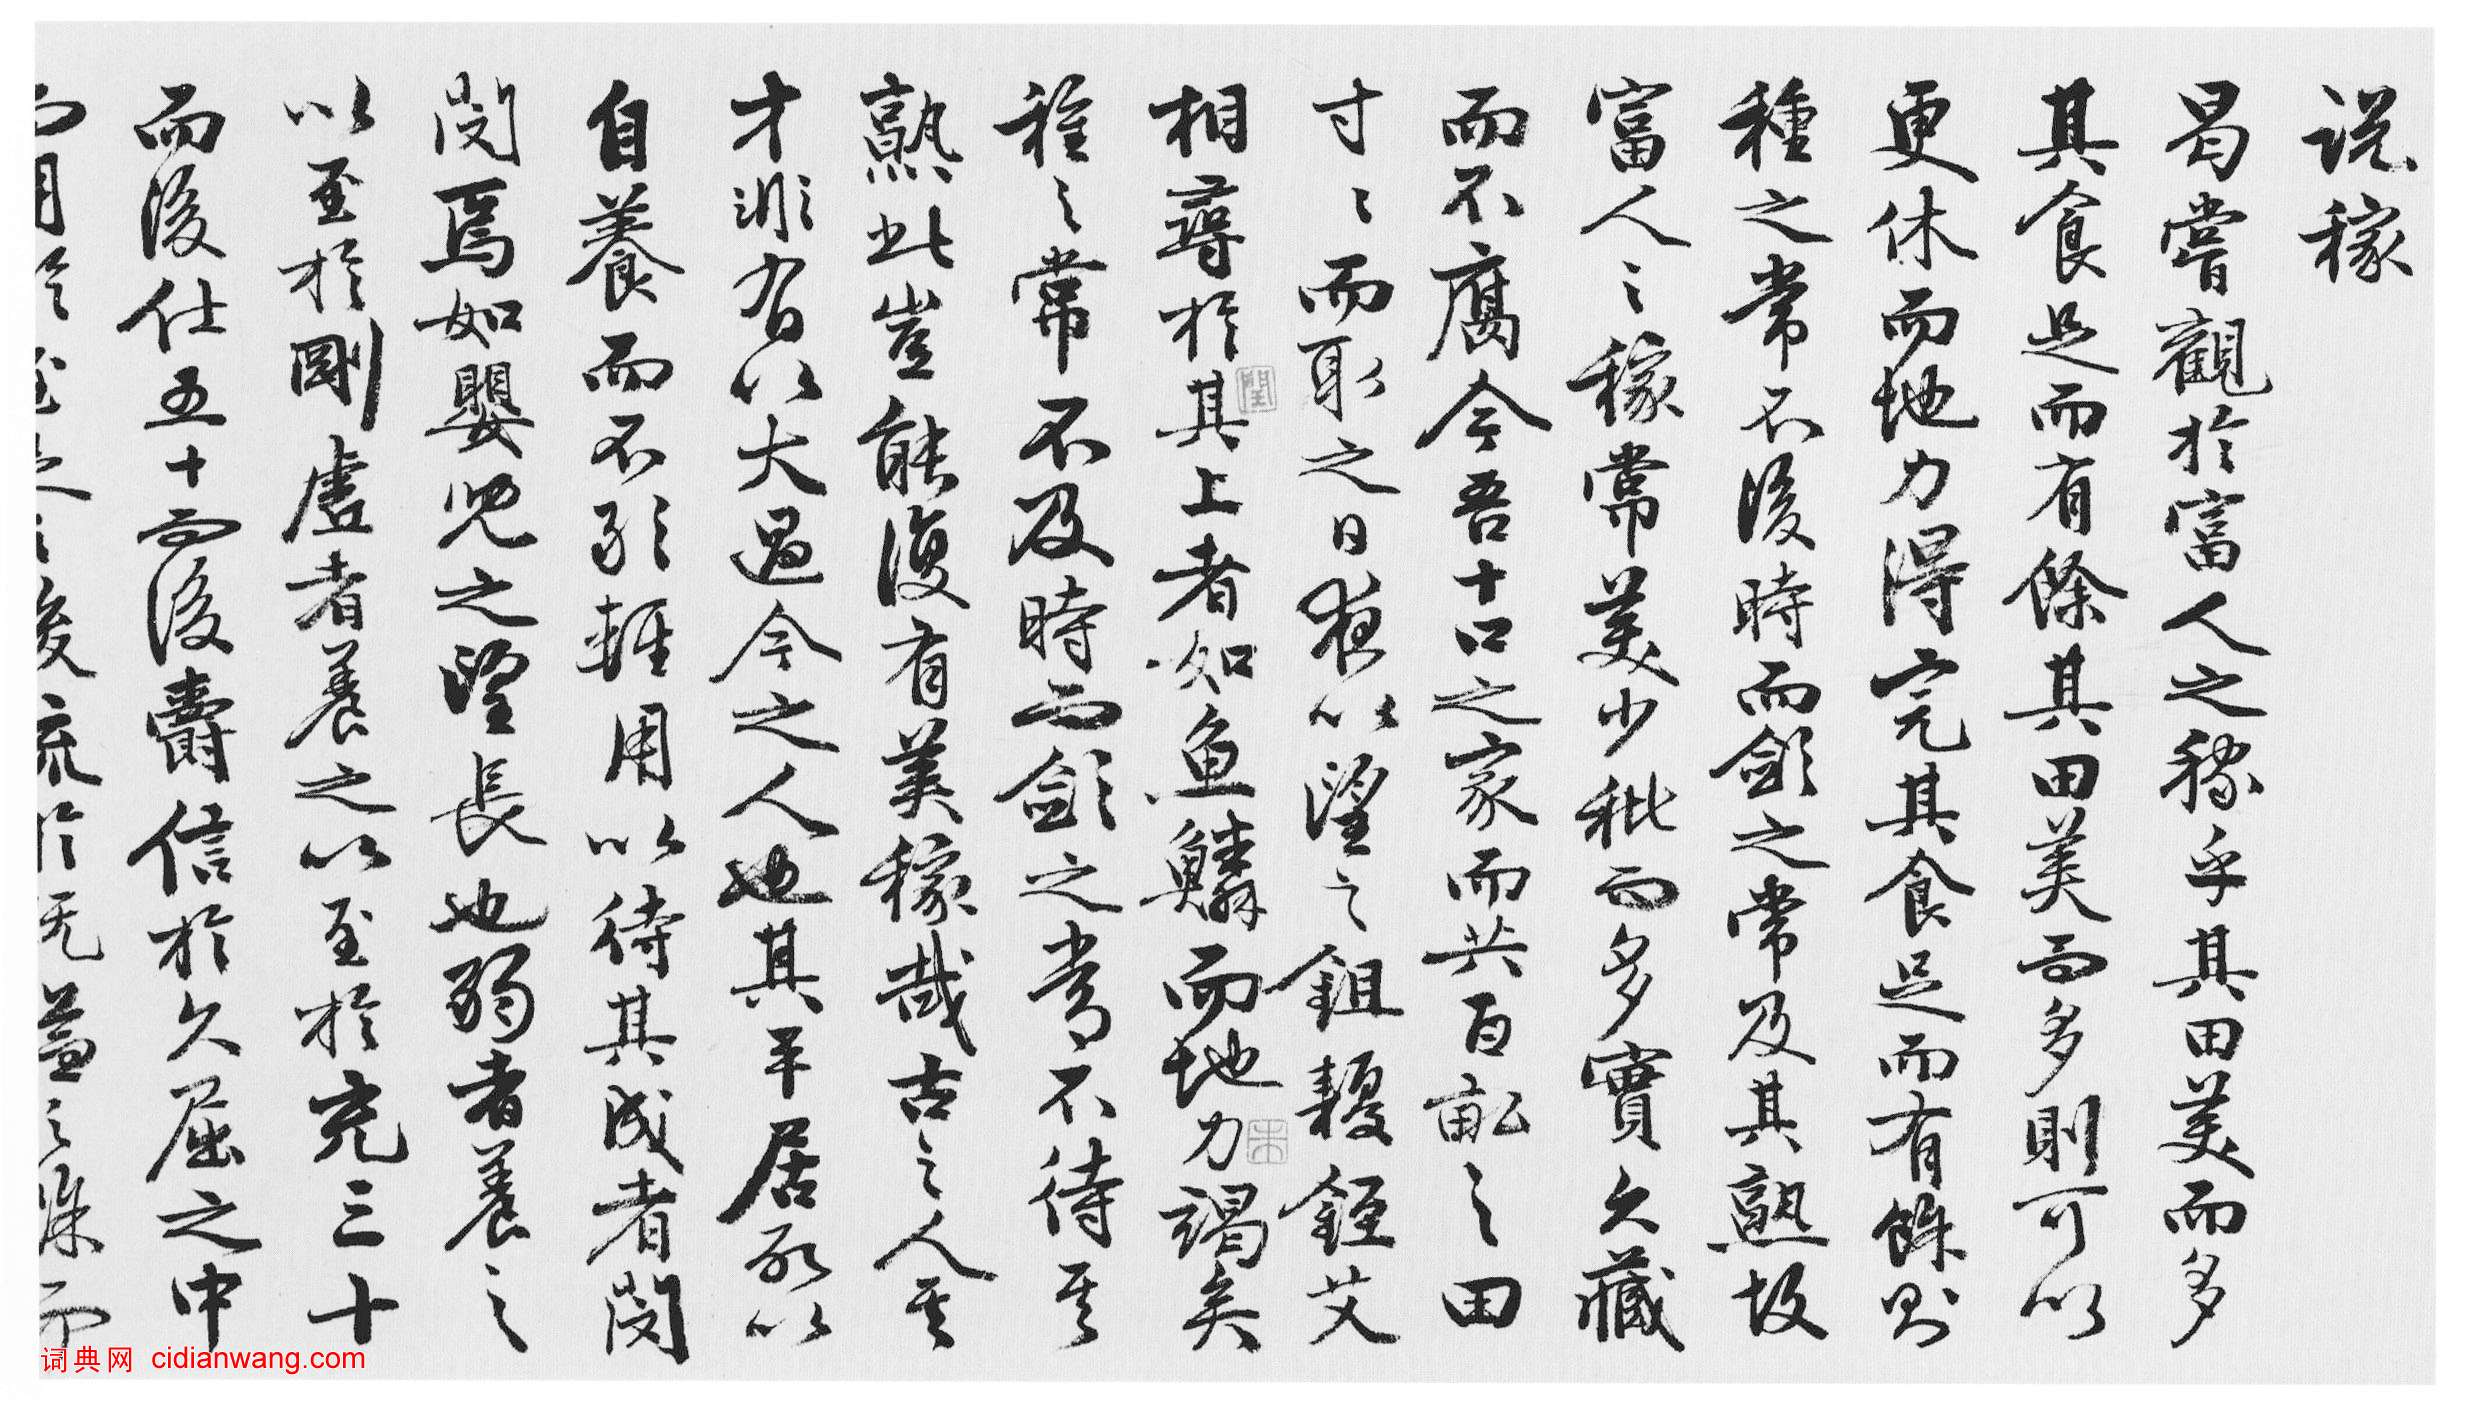 说稼
曷嘗觀於富人之稼乎其田美而多
其食足而有餘其田美而多則可以
更休而地力得完其食足而有餘則
種之常不後時而斂之常及其熟故
富人之稼常美少秕而多實久藏
而不腐今吾十口之家而共百畝之田
寸寸而取之日夜以望之鉏耰銍艾
相尋於其上者如魚鱗而地力竭矣
種之常不及時而斂之常不待其
熟此豈能復有美稼哉古之人其
才非有以大過今之人也其平居所以
自養而不敢輕用以待其成者閔
閔焉如嬰兒之望長也弱者養之
以至於剛虛者養之以至於充三十
而後仕五十而後爵信於久屈之中
而用於至足之後流於既溢之餘而
词典网 cidianwang.com